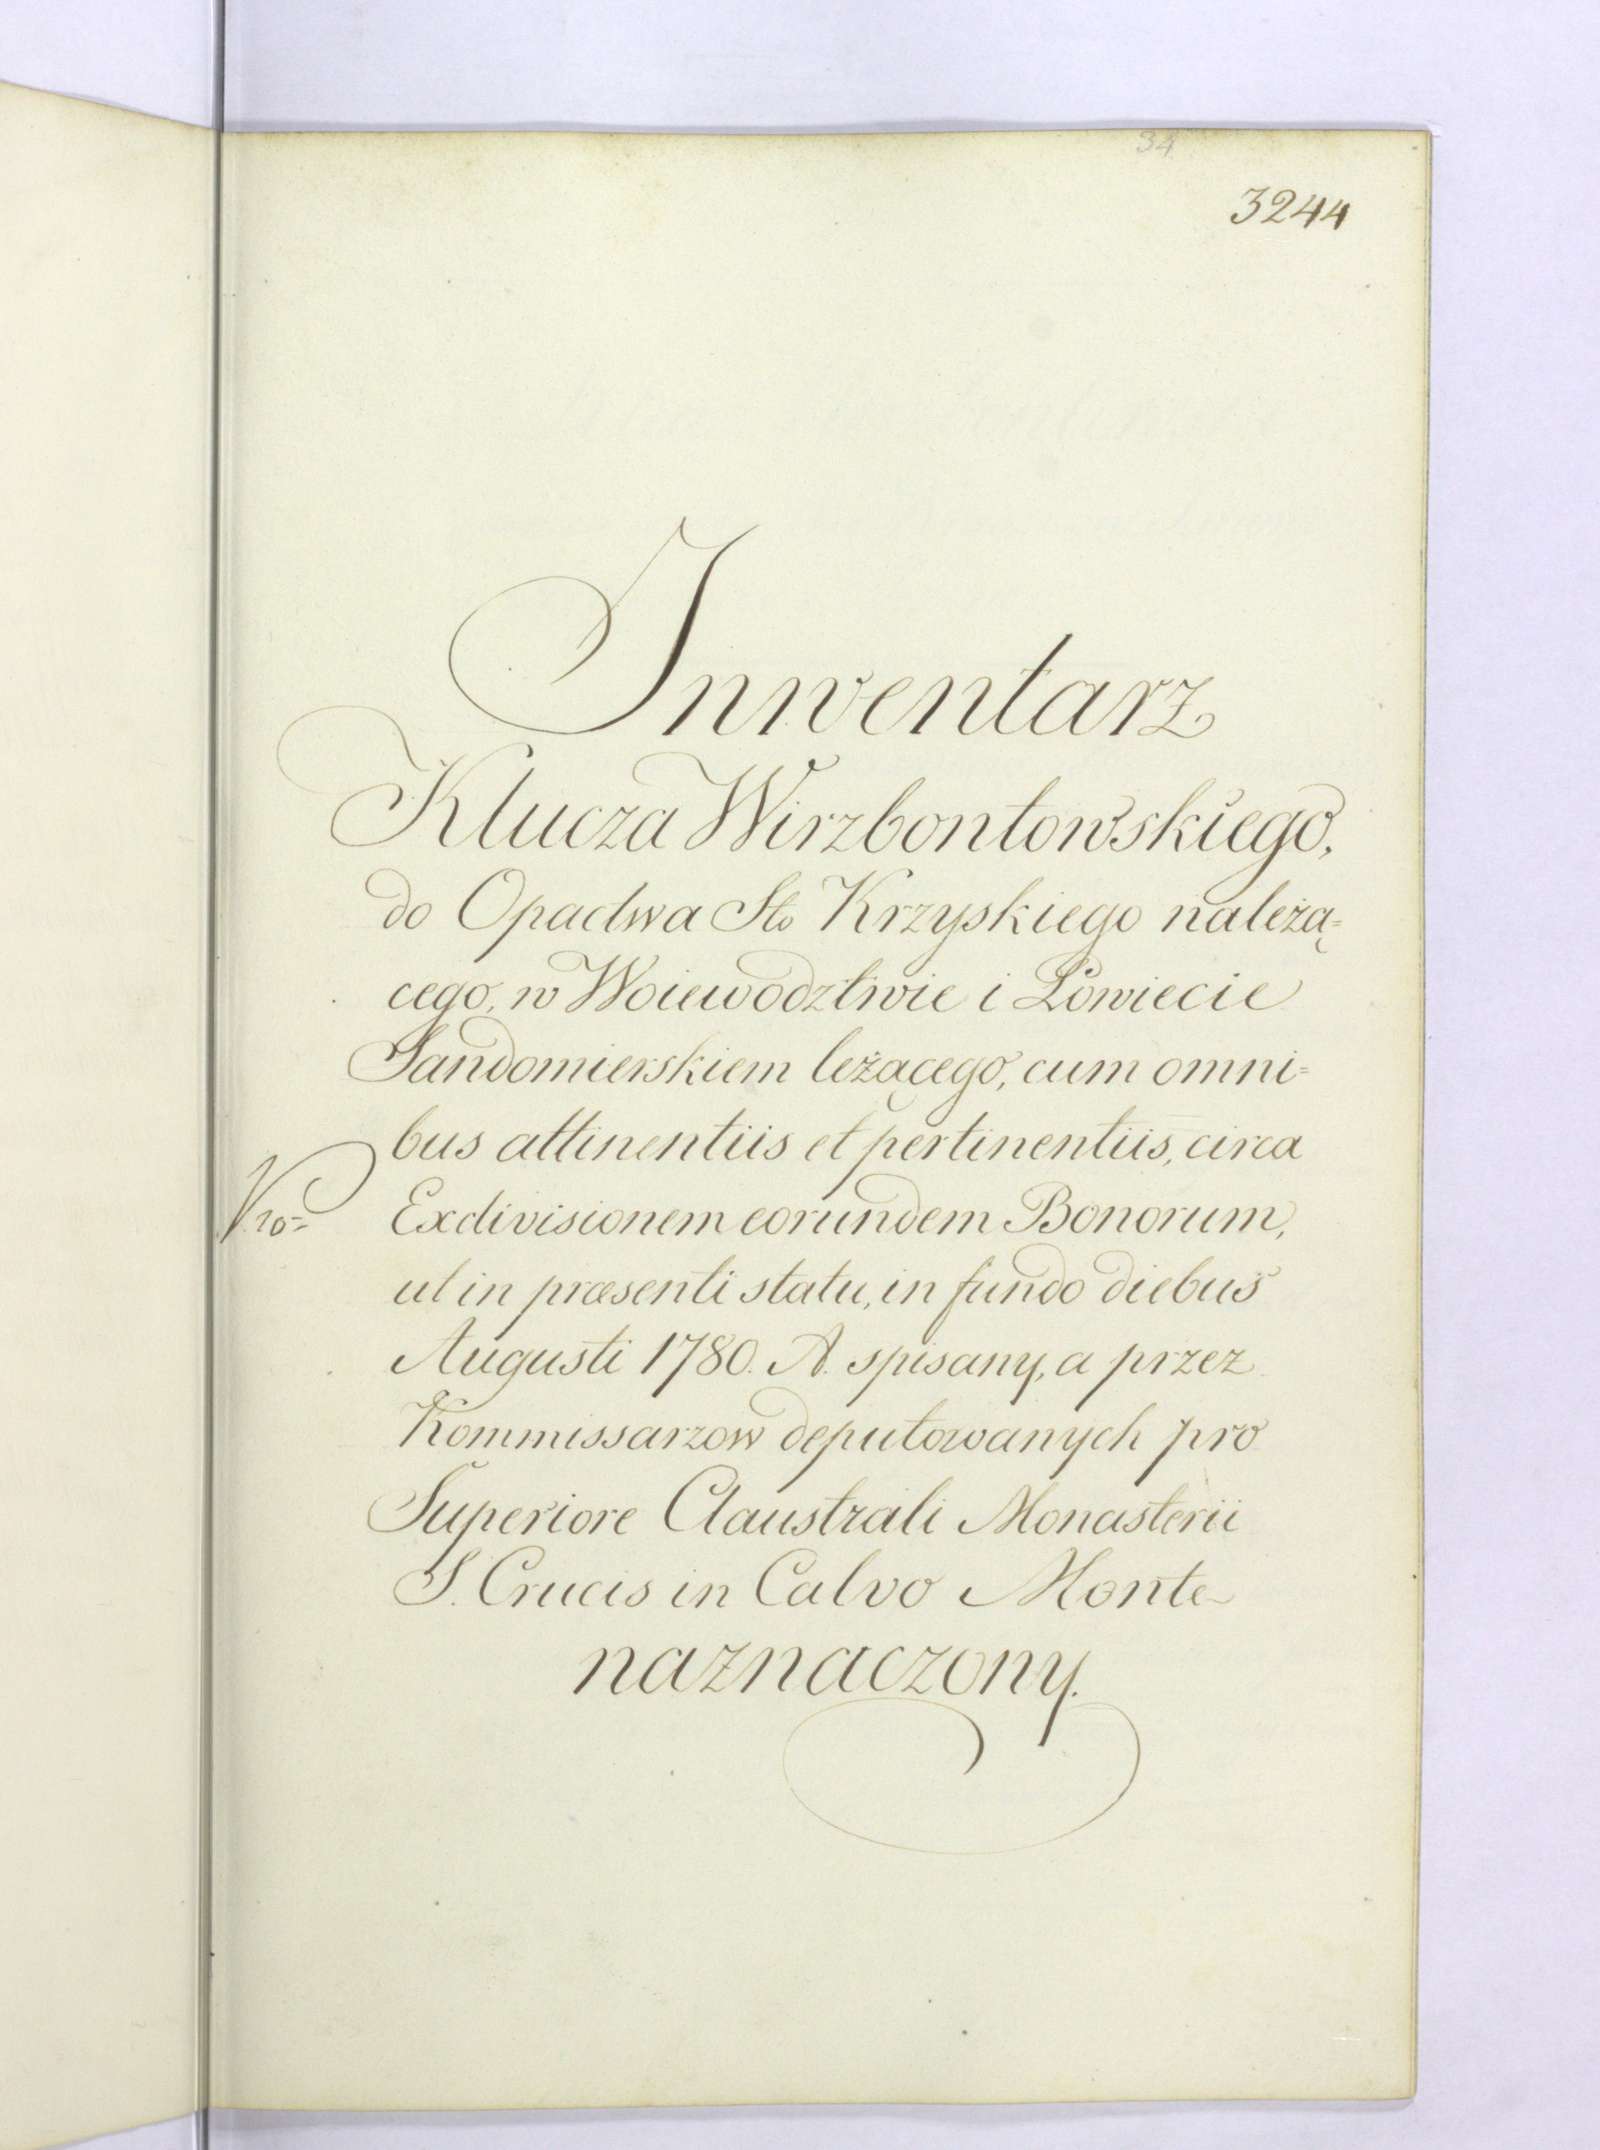 34
3244
Inwentarz
Klucza Wirzbontowskiego,
do Opactwa Sto Krzyskiego należą=
cego, w Woiewodztwie i Powiecie
Sandomierskiem leżącego, cum omni=
bus attinentiis et pertinentiis, circa
Exdivisionem eorundem Bonorum,
ut in præsenti statu, in fundo diebus
Augusti 1780. A. spisany, a przez
Kommissarzow deputowanych pro
Superiore Claustrali Monasterii
S. Crucis in Calvo Monte
naznaczony.